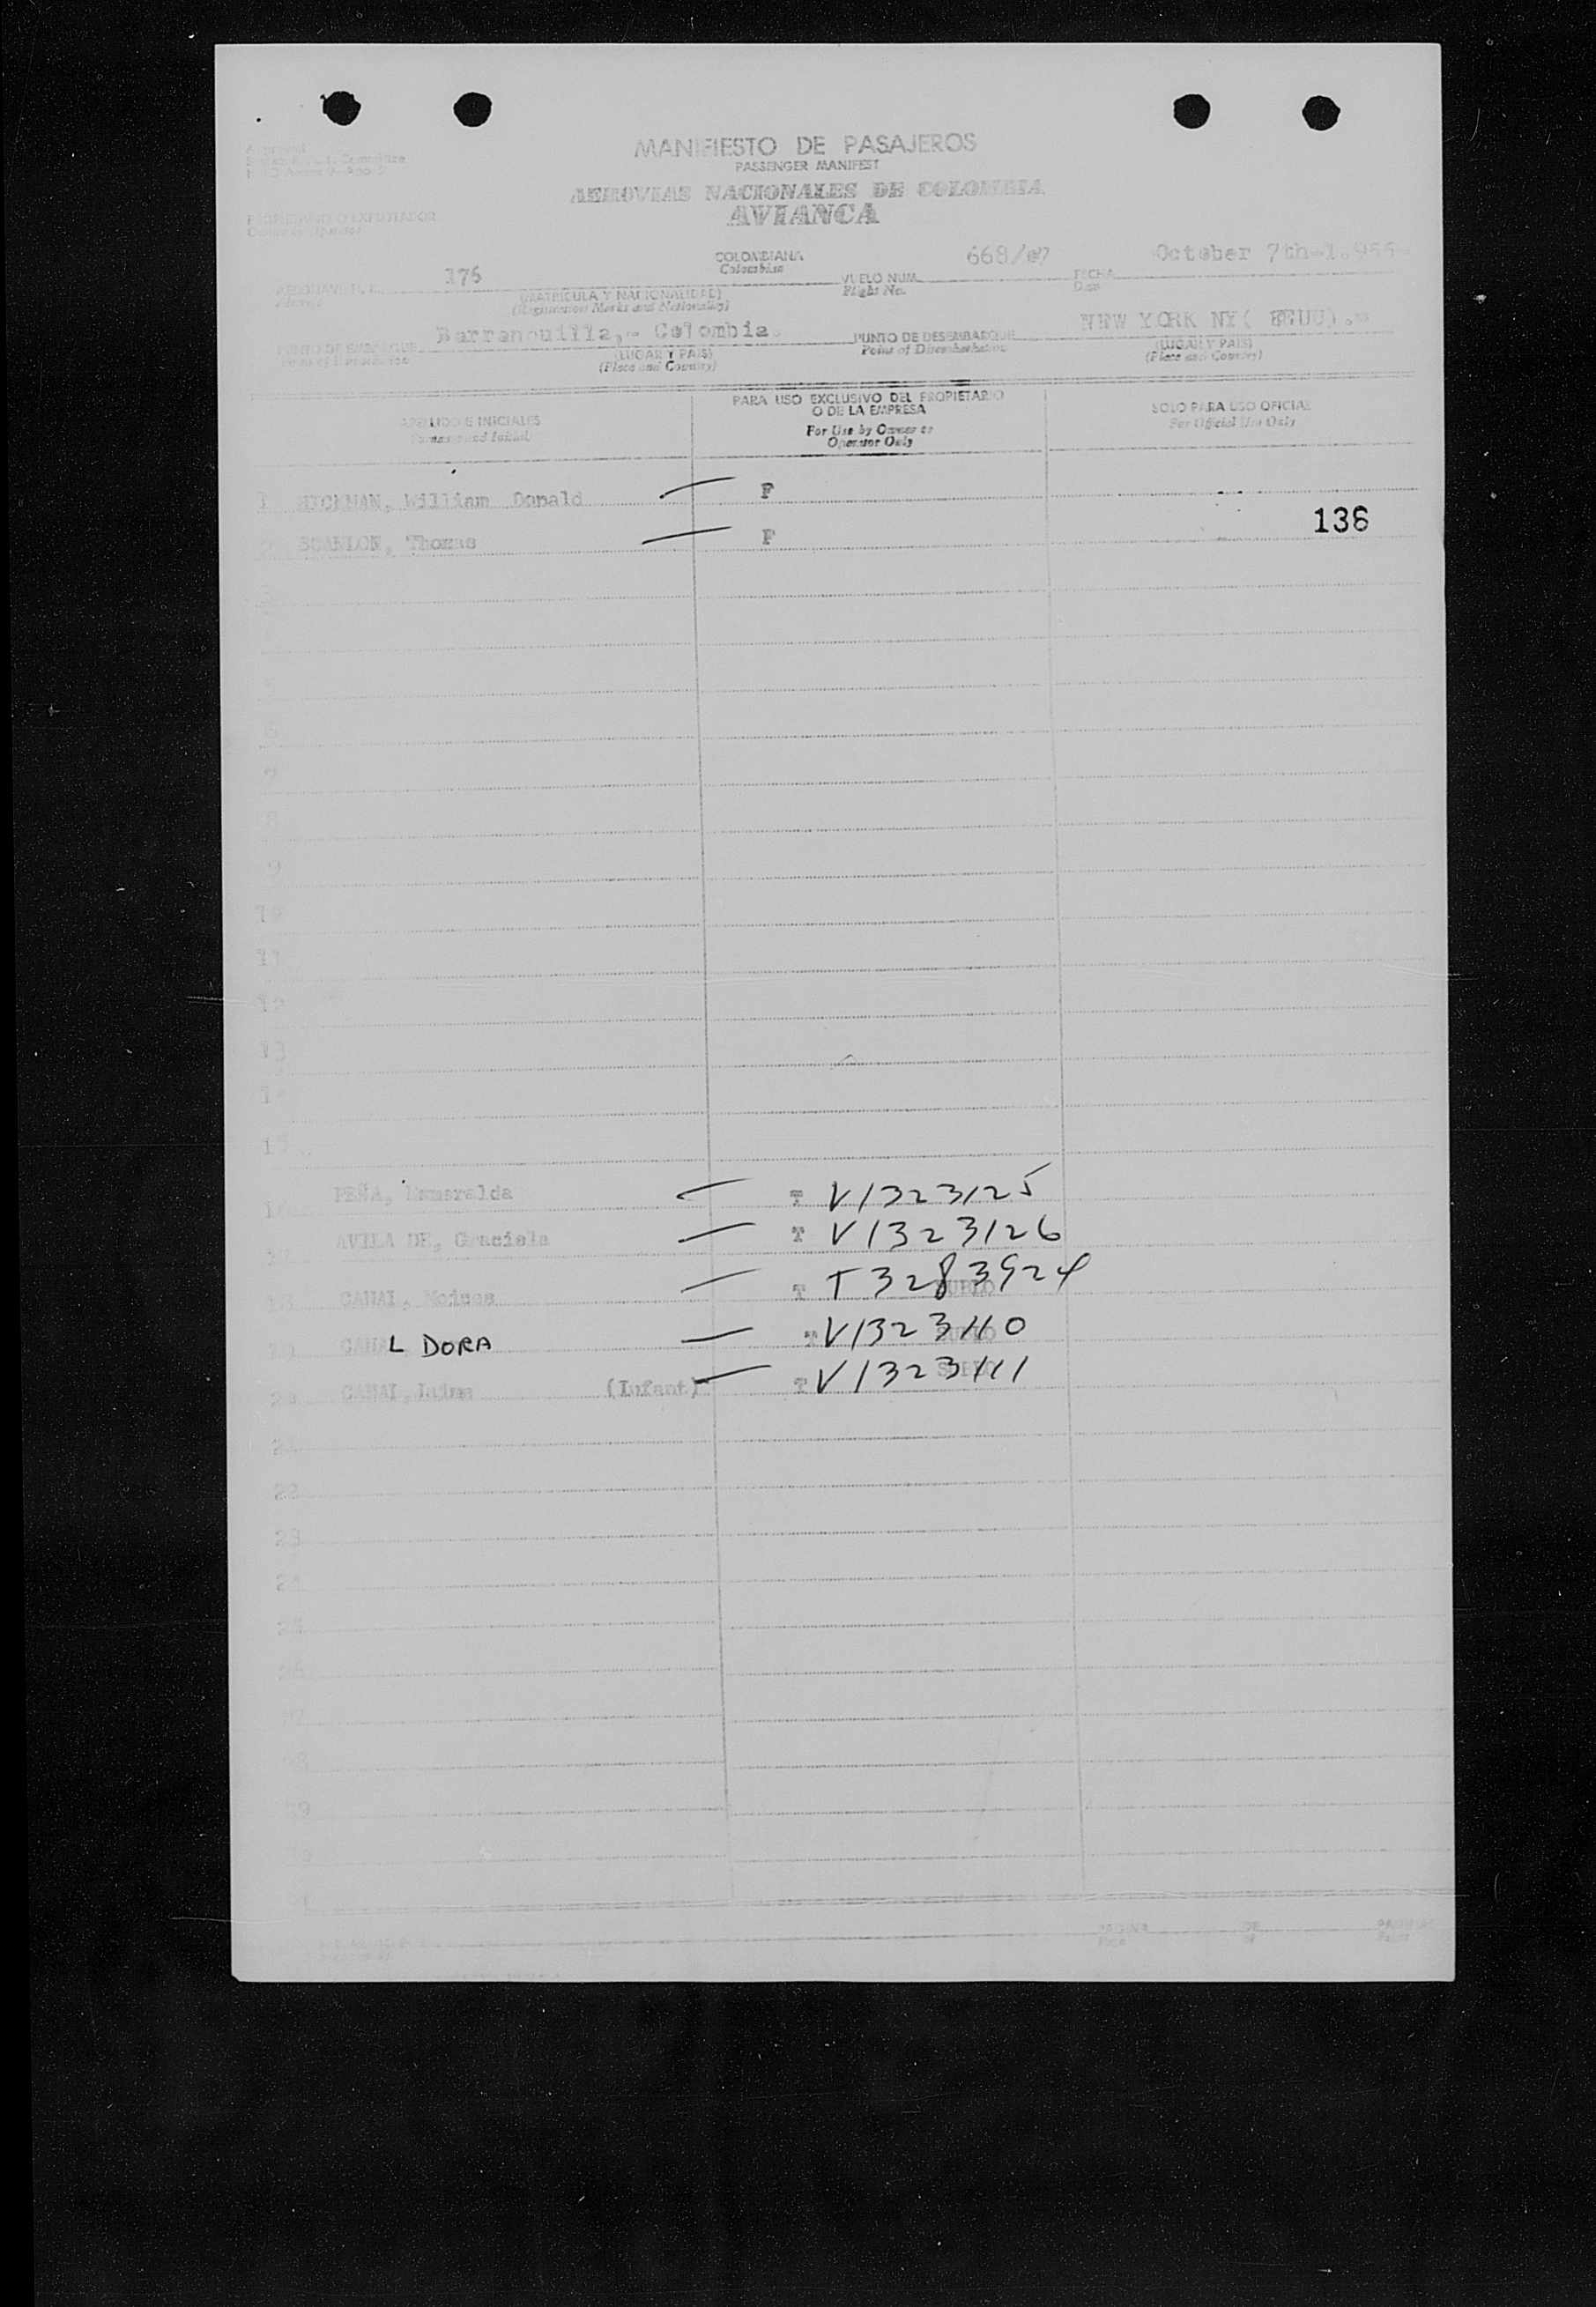 MANIFIESTO DE PASAJEROS
PASSENGER MANIFEST
AEROVIAS NACIONALES DE COLOMBIA
AVIANCA
PROPIETARIO O EXPLOTADOR
COLOMBIANA 668/ October 7th-1.955
Colombian
AERONAVE 176 VUELO NUM. FECHA
(MATRICULA Y NACIONALIDAD) Flight No. Date
(Registration Marks and Nationality)
Barranquilla,- Colombia NEW YORK NY( EEUU).-
PUNTO DE EMBARQUE PUNTO DE DESEMBARQUE
(LUGAR Y PAIS) Point of Disembarkation (LUGAR Y PAIS)
(Place and Country) (Place and Country)
APELLIDO E INICIALES PARA USO EXCLUSIVO DEL PROPIETARIO SOLO PARA USO OFICIAL
Surname and Initial O DE LA EMPRESA For Official Use Only
For Use by Owner or
Operator Only
1 HICKMAN, William Donald F
2 SCANLON, Thomas F 136
5
6
7
8
9
10
11
12
13
14
15
PEÑA, Esmeralda T V1323125
AVILA DE, Graciela T V1323126
18 CAHAI, Moises T T3283924
L DORA T V1323110
20 CAHAI, (Infant) T V1323111
21
22
23
24
25
26
27
28
29
PAGINA DE PAGINAS
Page of Pages